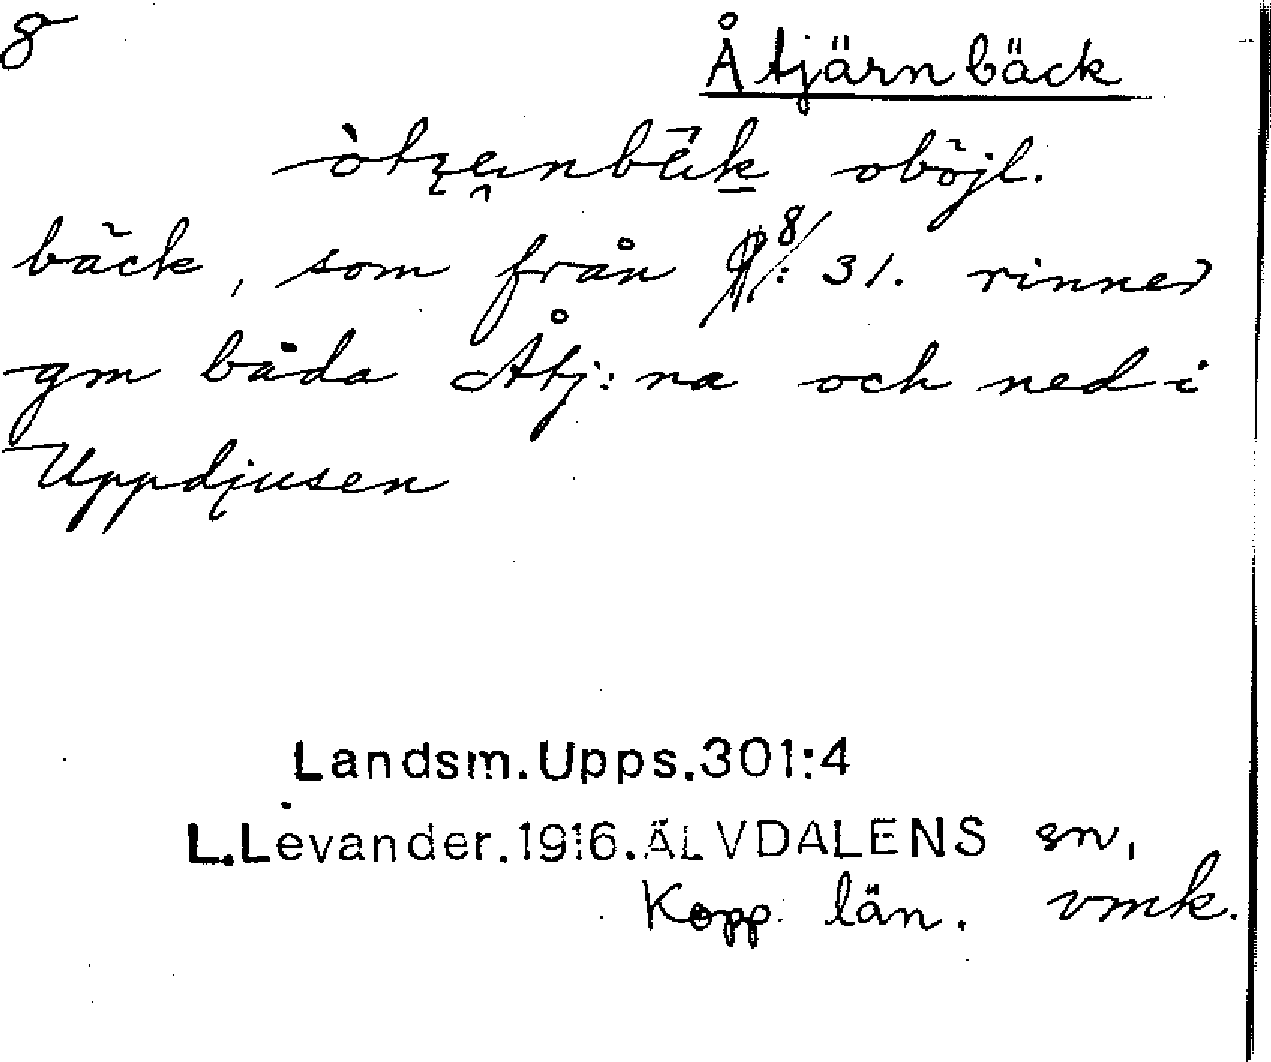 8
Åtjärnbäck
oböjl.
bäck, som från 8/: 31. rinner
gm båda Åtj:na och ned i
Uppdjusen
Landsm.Upps.301:4
L.Levander.1916.ÄLVDALENS sn,
Kopp. län. vmk.